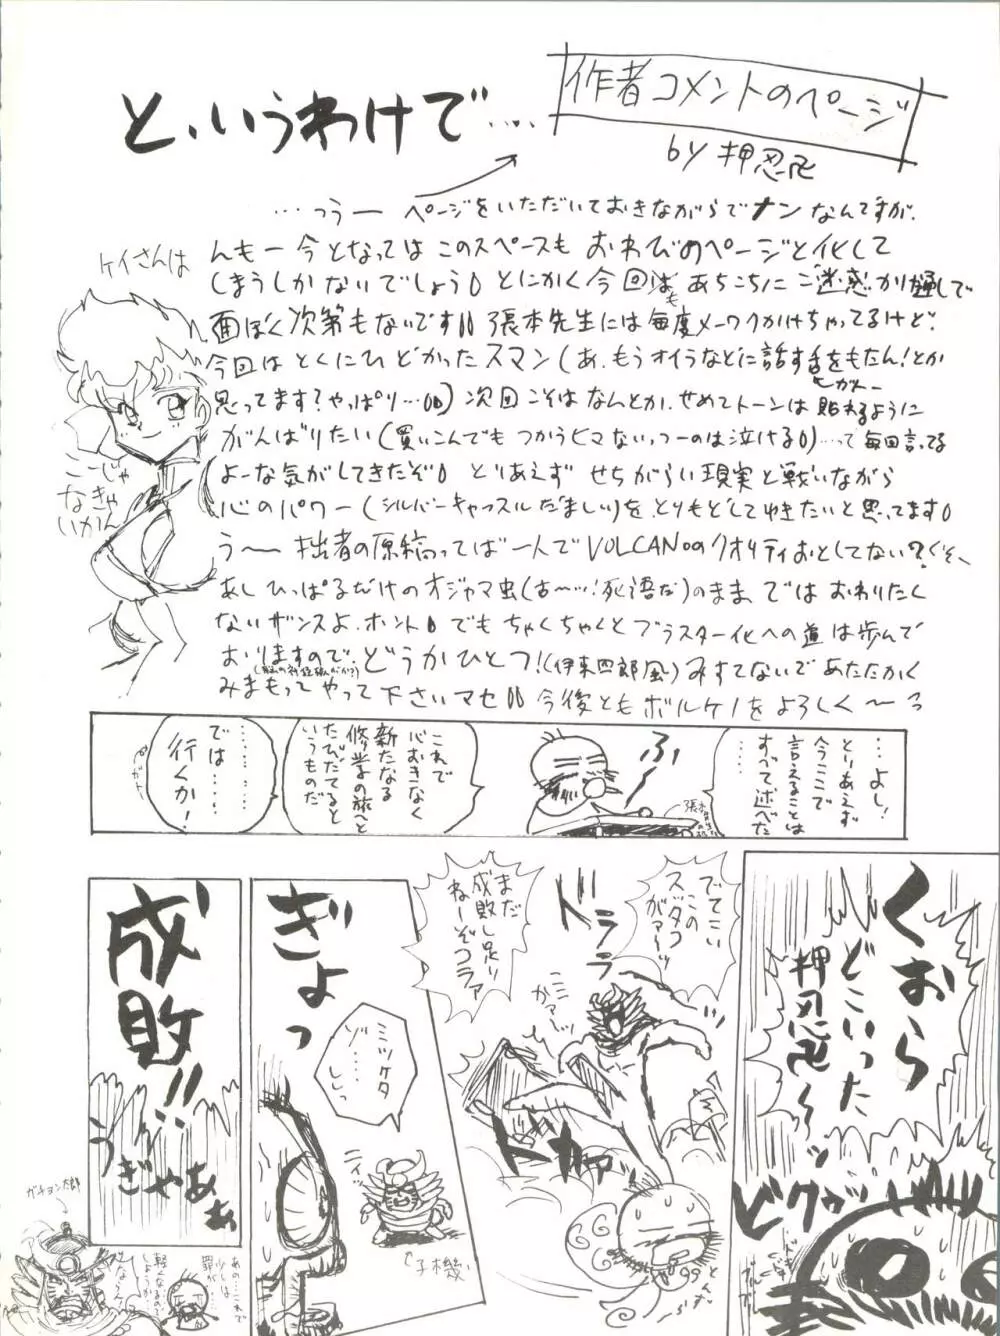 と、いうわけで…..
作者コメントのページ
by 押忍
…っうー ページをいただいておきながらでナンなんですが、
んもー今となってはこのスペースも おわびのページと化して
しまうしかないでしょう とにかく今回はも あちこちに ご迷惑かけ通しで
面ぼく次第もないです 張本先生には毎度メーワクかけちゃってるけど、
今回はとくにひどかったスマン(あ、もうオイラなどに話す舌をもたん!とか
思ってます?やっぱり…)次回こそはなんとか、せめてトーンは貼れるように
がんばりたい(買いこんでもつかうヒマないっつーのは泣ける)…って毎回言ってる
よーな気がしてきたぞ とりあえず せちがらい現実と戦いながら
心のパワー(シルバーキャッスルだましい)を、とりもどしてゆきたいと思ってます
う〜 拙者の原稿ってば一人でVOLCANOのクオリティおとしてない?ぐそ、
あし ひっぱるだけのオジャマ虫(古〜ッ!死語だ)のまま、では おわりたく
ないザンスよ、ホント でも ちゃくちゃくとブラスター化への道は歩んで
おりますので、どうかひとつ!(伊東四郎風)みすてないであたたかく
みまもって やって 下さいマセ 今後とも ボルケーノをよろしく〜っ
ケイさんは
こーじゃ
なきゃ
いかん
…よし!
とりあえず
今ここで
言えることは
すべて述べた
ふぅ
これで
心おきなく
新たなる
修学の旅へと
たびだてると
いうものだ
では……
行くか!
くおら
どこいった
押忍
〜ッ
ドクッ
でてこい
このスッタコ
がァーッ
ドドドド
まだ
成敗し足り
ねーぞコラァ
ドカァッ
ぎょっ
ミツケタ
ゾ…
ニイッ
子機
成敗!!
うぎゃああぁ
ガチョン太郎